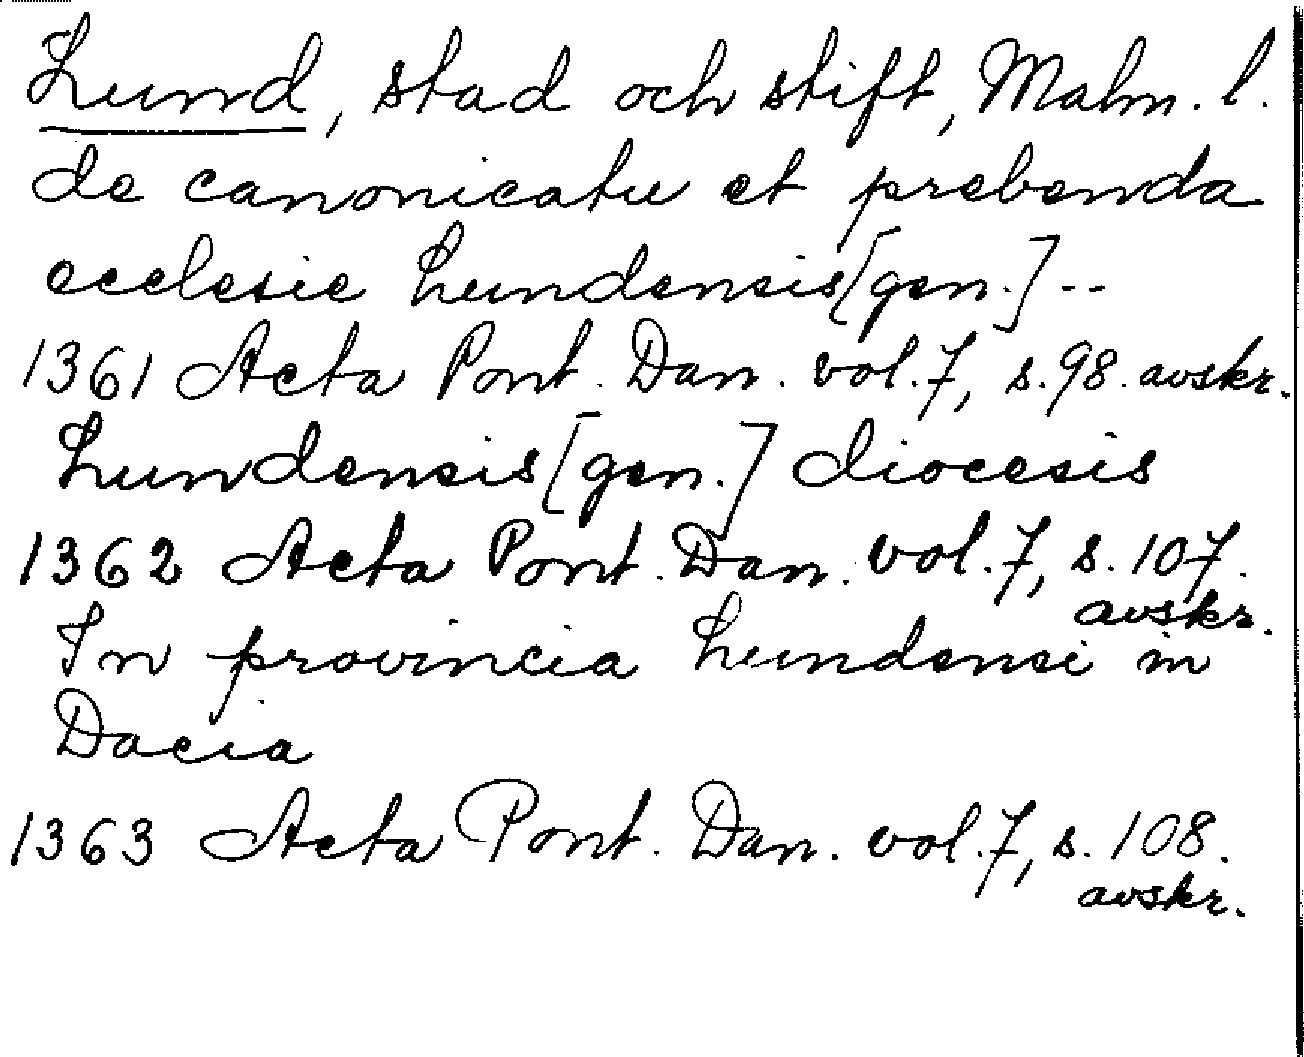 Lund, stad och stift, Malm. l.
de canonicatu et prebenda
ecclesie Lundensis [gen.] --
1361 Acta Pont. Dan. vol. 7, s. 98. avskr.
Lundensis [gen.] diocesis
1362 Acta Pont. Dan. vol. 7, s. 107.
avskr.
In provincia Lundensi in
Dacia
1363 Acta Pont. Dan. vol. 7, s. 108.
avskr.